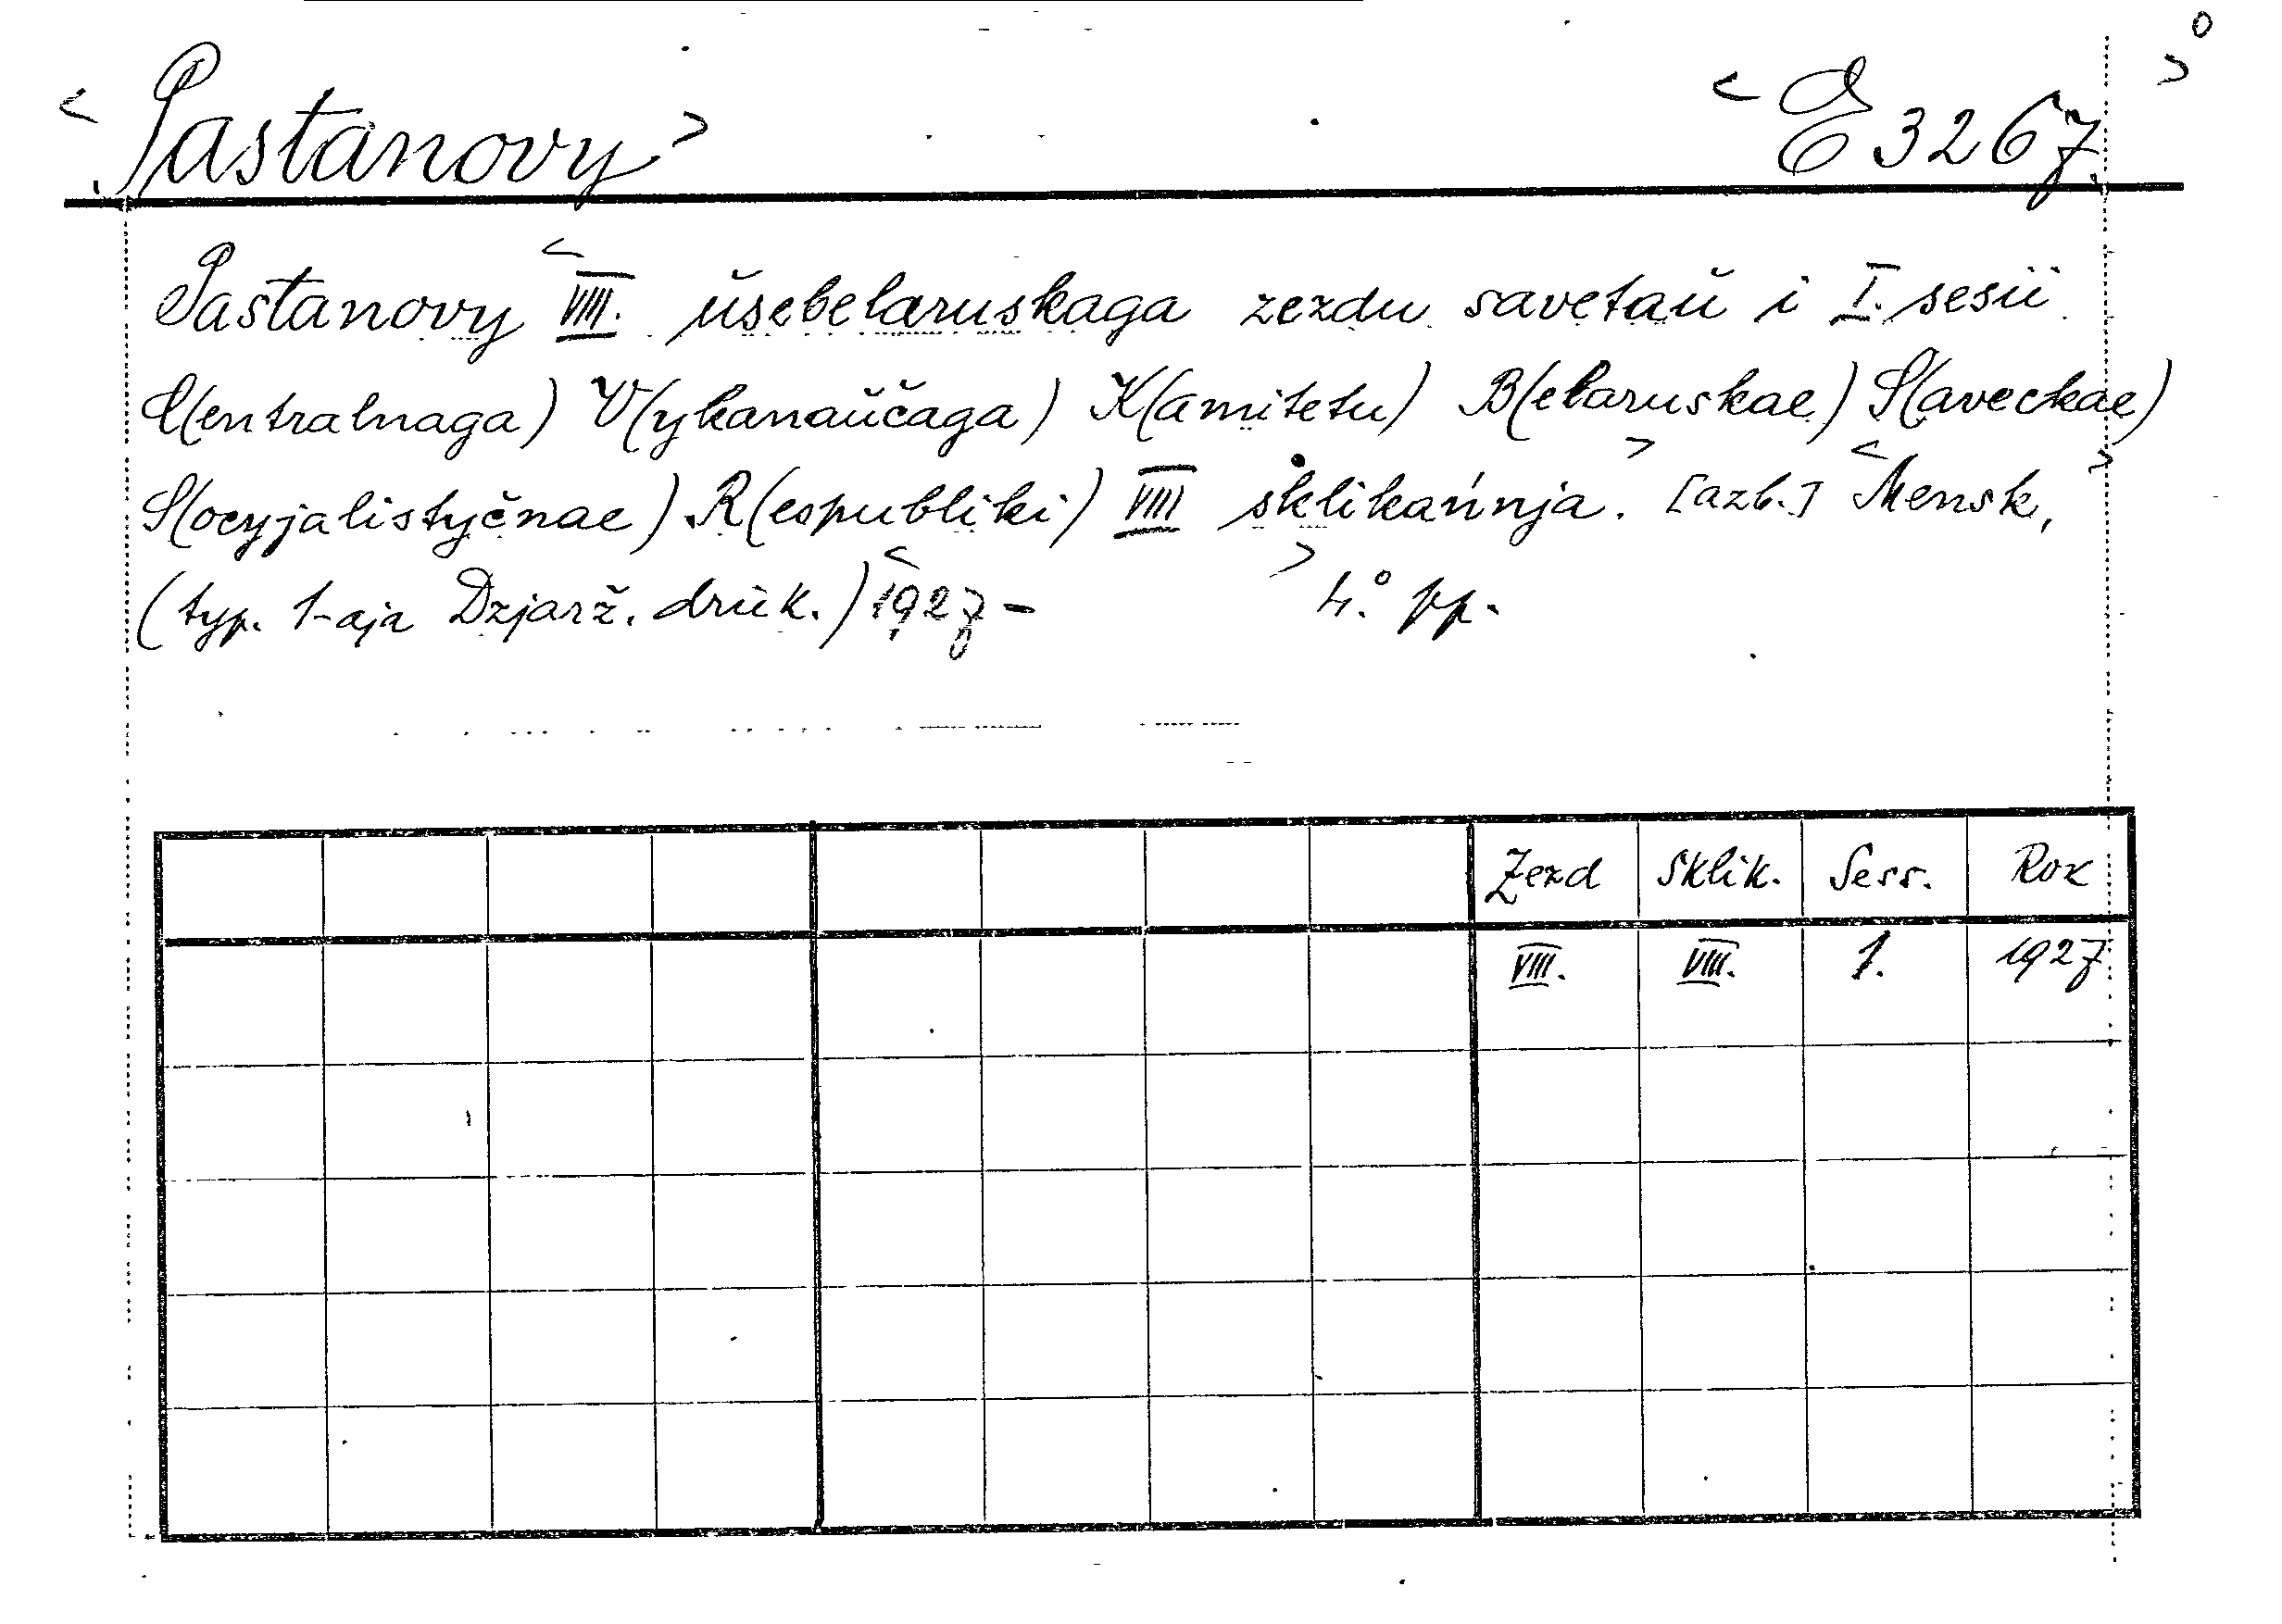 < Pastanovy > < E 3267. > o
Pastanovy < VIII. ŭsebelaruskaga zezdu savetaŭ i I. sesii
C(entralnaga) V(ykanaŭčaga) K(amitetu) B(elaruskae) S(aveckae)
S(ocyjalistyčnae) R(espubliki) VIII sklikańnja. > [azb.] < Mensk, >
(typ. 1-aja Dzjarž. druk.) < 1927 - > 4.° pp.
Zezd Sklik. Sess. Rok
VIII. VIII. 1. 1927